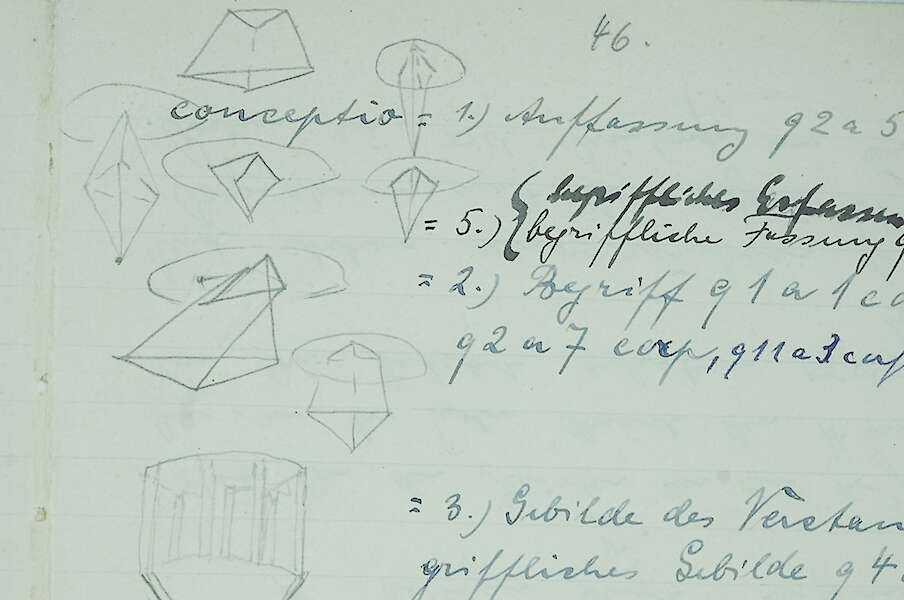 46.
conceptio = 1.) Auffassung q 2 a 5
= 5.) { begriffliches Erfassen
begriffliche Fassung q
= 2.) Begriff q 1 a 1 co
q 2 a 7 corp, q 11 a 3 corp
= 3.) Gebilde des Verstan
griffliches Gebilde q 4.